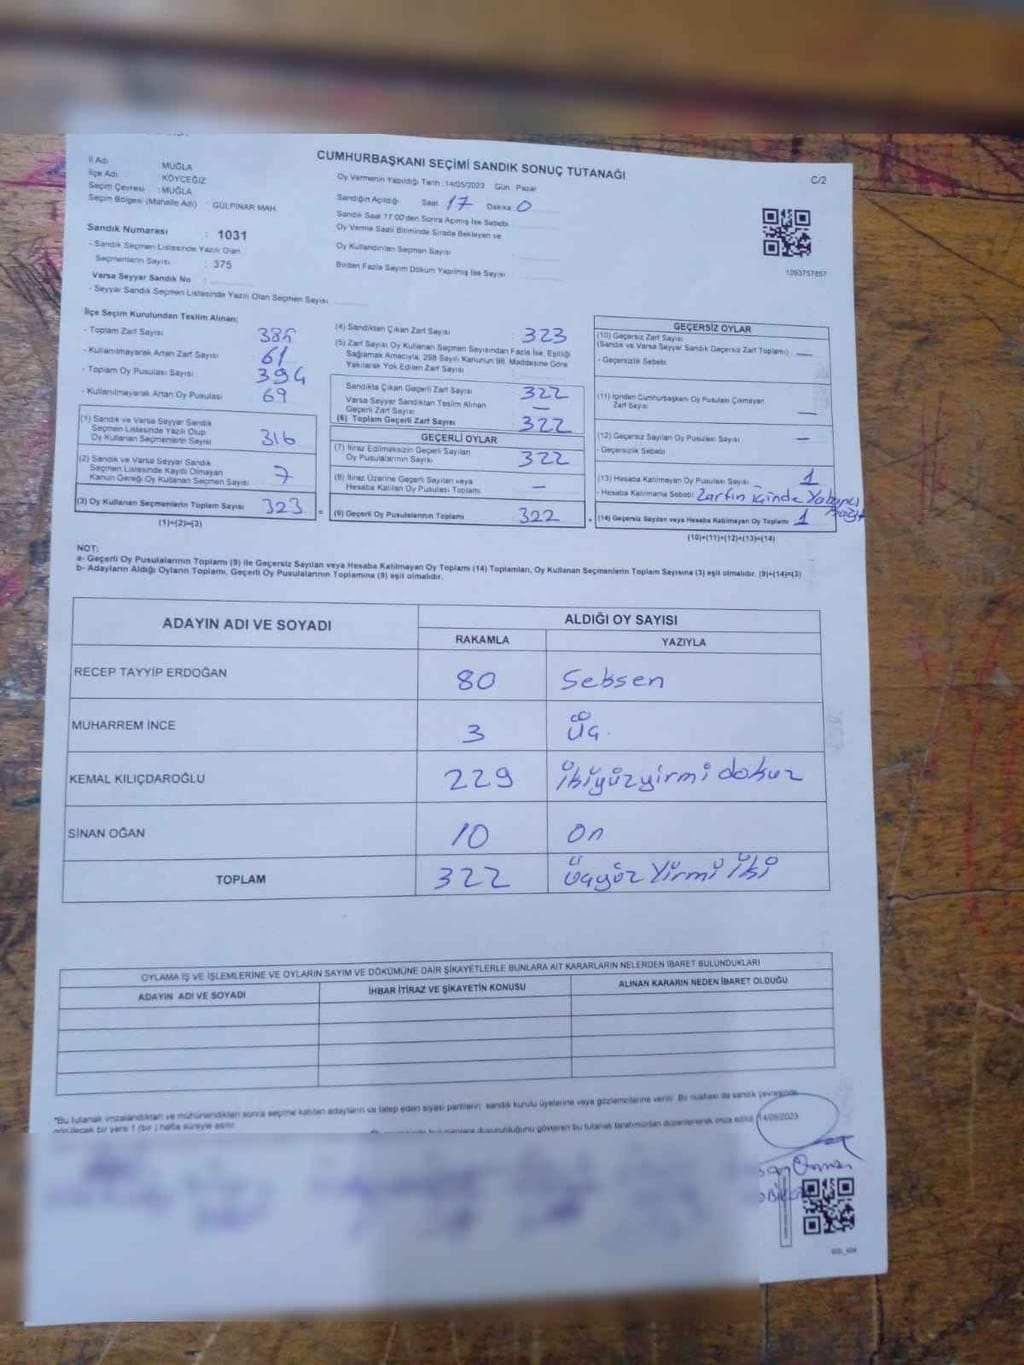 CUMHURBAŞKANI SEÇİMİ SANDIK SONUÇ TUTANAĞI
C/2
İl Adı : MUĞLA
İlçe Adı : KÖYCEĞİZ
Seçim Çevresi : MUĞLA
Seçim Bölgesi (Mahalle Adı) : GÜLPINAR MAH.
Sandık Numarası : 1031
- Sandık Seçmen Listesinde Yazılı Olan
Seçmenlerin Sayısı : 375
Varsa Seyyar Sandık No :
- Seyyar Sandık Seçmen Listesinde Yazılı Olan Seçmen Sayısı
Oy Vermenin Yapıldığı Tarih :14/05/2023 Gün : Pazar
Sandığın Açıldığı Saat 17 Dakika 0
Sandık Saat 17:00'den Sonra Açılmış İse Sebebi
Oy Verme Saati Bitiminde Sırada Bekleyen ve
Oy Kullandırılan Seçmen Sayısı
Birden Fazla Sayım Döküm Yapılmış İse Sayısı
1093757857
İlçe Seçim Kurulundan Teslim Alınan;
- Toplam Zarf Sayısı
- Kullanılmayarak Artan Zarf Sayısı 61
- Toplam Oy Pusulası Sayısı 394
- Kullanılmayarak Artan Oy Pusulası 69
(1) Sandık ve Varsa Seyyar Sandık
Seçmen Listesinde Yazılı Olup
Oy Kullanan Seçmenlerin Sayısı 316
(2) Sandık ve Varsa Seyyar Sandık
Seçmen Listesinde Kayıtlı Olmayan
Kanun Gereği Oy Kullanan Seçmen Sayısı 7
(3) Oy Kullanan Seçmenlerin Toplam Sayısı 323
(1)+(2)=(3)
(4) Sandıktan Çıkan Zarf Sayısı : 323
(5) Zarf Sayısı Oy Kullanan Seçmen Sayısından Fazla İse, Eşitliği
Sağlamak Amacıyla, 298 Sayılı Kanunun 98. Maddesine Göre
Yakılarak Yok Edilen Zarf Sayısı
Sandıkta Çıkan Geçerli Zarf Sayısı 322
Varsa Seyyar Sandıktan Teslim Alınan
Geçerli Zarf Sayısı —
(6) Toplam Geçerli Zarf Sayısı 322
GEÇERLİ OYLAR
(7) İtiraz Edilmeksizin Geçerli Sayılan
Oy Pusulalarının Sayısı 322
(8) İtiraz Üzerine Geçerli Sayılan veya
Hesaba Katılan Oy Pusulası Toplamı —
(9) Geçerli Oy Pusulalarının Toplamı 322
GEÇERSİZ OYLAR
(10) Geçersiz Zarf Sayısı
(Sandık ve Varsa Seyyar Sandık Geçersiz Zarf Toplamı) —
- Geçersizlik Sebebi
(11) İçinden Cumhurbaşkanı Oy Pusulası Çıkmayan
Zarf Sayısı —
(12) Geçersiz Sayılan Oy Pusulası Sayısı —
- Geçersizlik Sebebi
(13) Hesaba Katılmayan Oy Pusulası Sayısı 1
- Hesaba Katılmama Sebebi Zarfın içinde Yabancı
(14) Geçersiz Sayılan veya Hesaba Katılmayan Oy Toplamı 1
(10)+(11)+(12)+(13)=(14)
NOT:
a- Geçerli Oy Pusulalarının Toplamı (9) ile Geçersiz Sayılan veya Hesaba Katılmayan Oy Toplamı (14) Toplamları, Oy Kullanan Seçmenlerin Toplam Sayısına (3) eşit olmalıdır. (9)+(14)=(3)
b- Adayların Aldığı Oyların Toplamı, Geçerli Oy Pusulalarının Toplamına (9) eşit olmalıdır.
ADAYIN ADI VE SOYADI
ALDIĞI OY SAYISI
RAKAMLA YAZIYLA
RECEP TAYYİP ERDOĞAN 80 Seksen
MUHARREM İNCE 3 Üç
KEMAL KILIÇDAROĞLU 229 ikiyüzyirmi dokuz
SİNAN OĞAN 10 On
TOPLAM 322 üçyüz Yirmi iki
OYLAMA İŞ VE İŞLEMLERİNE VE OYLARIN SAYIM VE DÖKÜMÜNE DAİR ŞİKAYETLERLE BUNLARA AİT KARARLARIN NELERDEN İBARET BULUNDUKLARI
ADAYIN ADI VE SOYADI
İHBAR İTİRAZ VE ŞİKAYETİN KONUSU
ALINAN KARARIN NEDEN İBARET OLDUĞU
*Bu tutanak imzalandıktan ve mühürlendikten sonra seçime katılan adayların ve talep eden siyasi partilerin sandık kurulu üyelerine veya gözlemcilerine verilir. Bir nüshası da sandık çevresinde
görülecek bir yere 1 (bir) hafta süreyle asılır.
14/05/2023